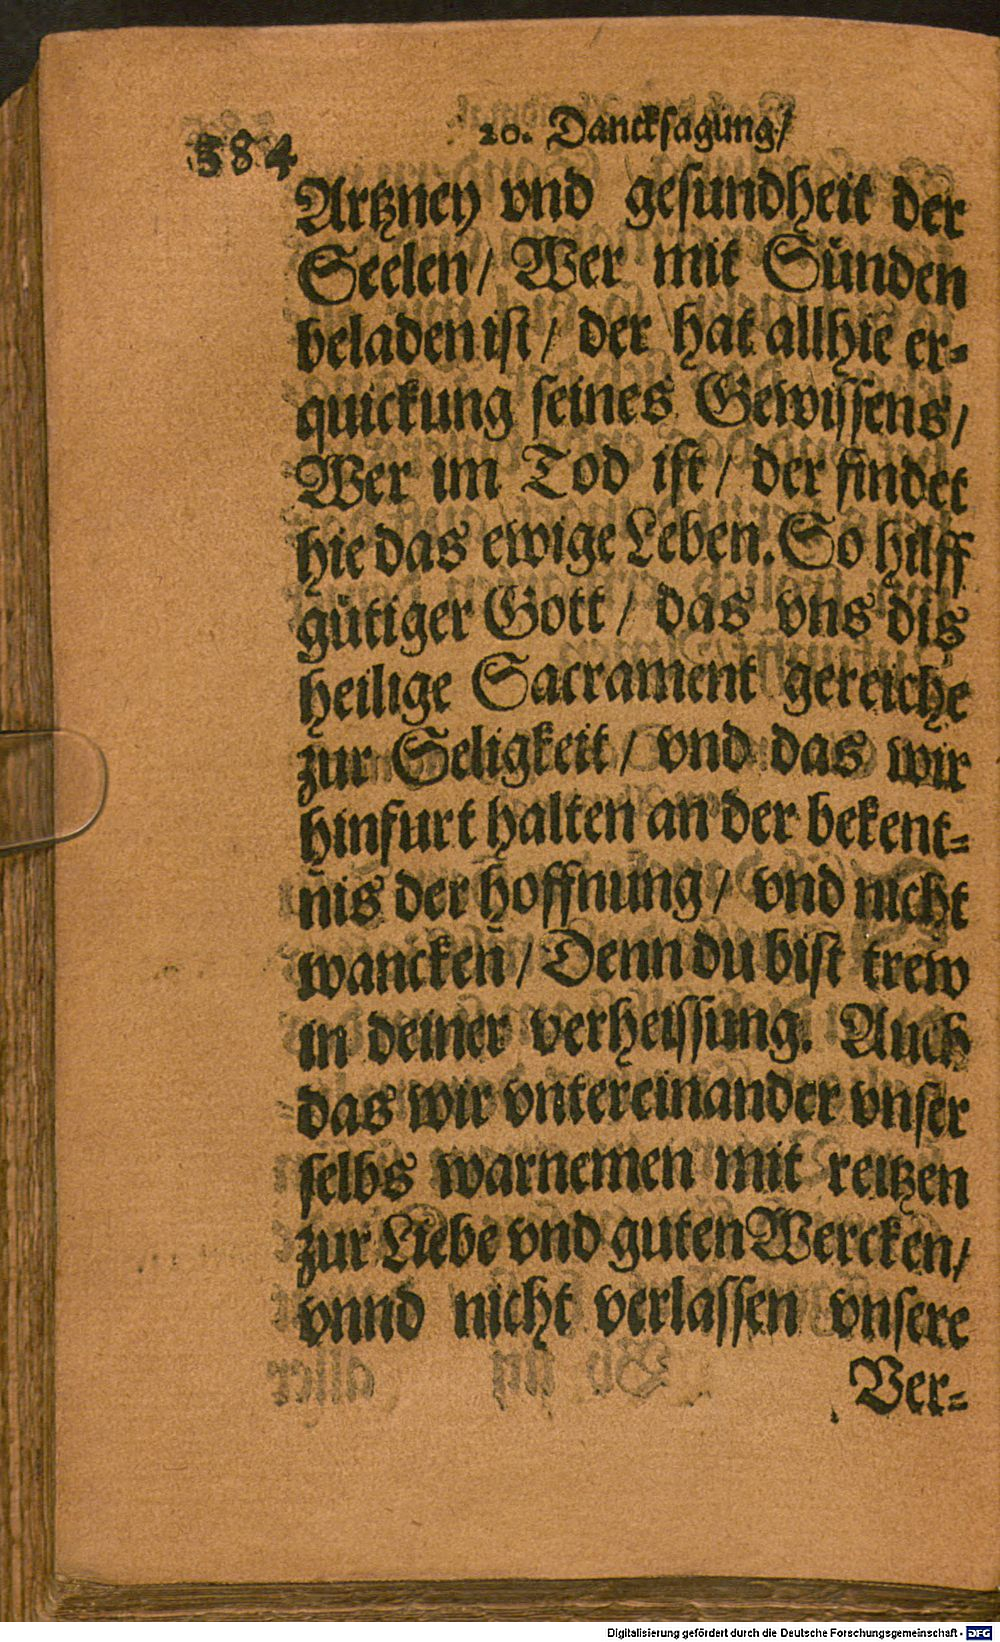 20. Dancksagung/
384
Artzney vnd gesundheit der
Seelen/ Wer mit Sünden
beladen ist/ der hat allhie er-
quickung seines Gewissens/
Wer im Tod ist/ der findet
hie das ewige Leben. So hilff
gütiger Gott/ das vns dis
heilige Sacrament gereiche
zur Seligkeit/ vnd das wir
hinfurt halten an der bekent-
nis der hoffnung/ vnd nicht
wancken/ Denn du bist trew
in deiner verheissung. Auch
das wir vntereinander vnser
selbs warnemen mit reitzen
zur Liebe vnd guten Wercken/
vnnd nicht verlassen vnsere
Ver-
Digitalisierung gefördert durch die Deutsche Forschungsgemeinschaft - DFG